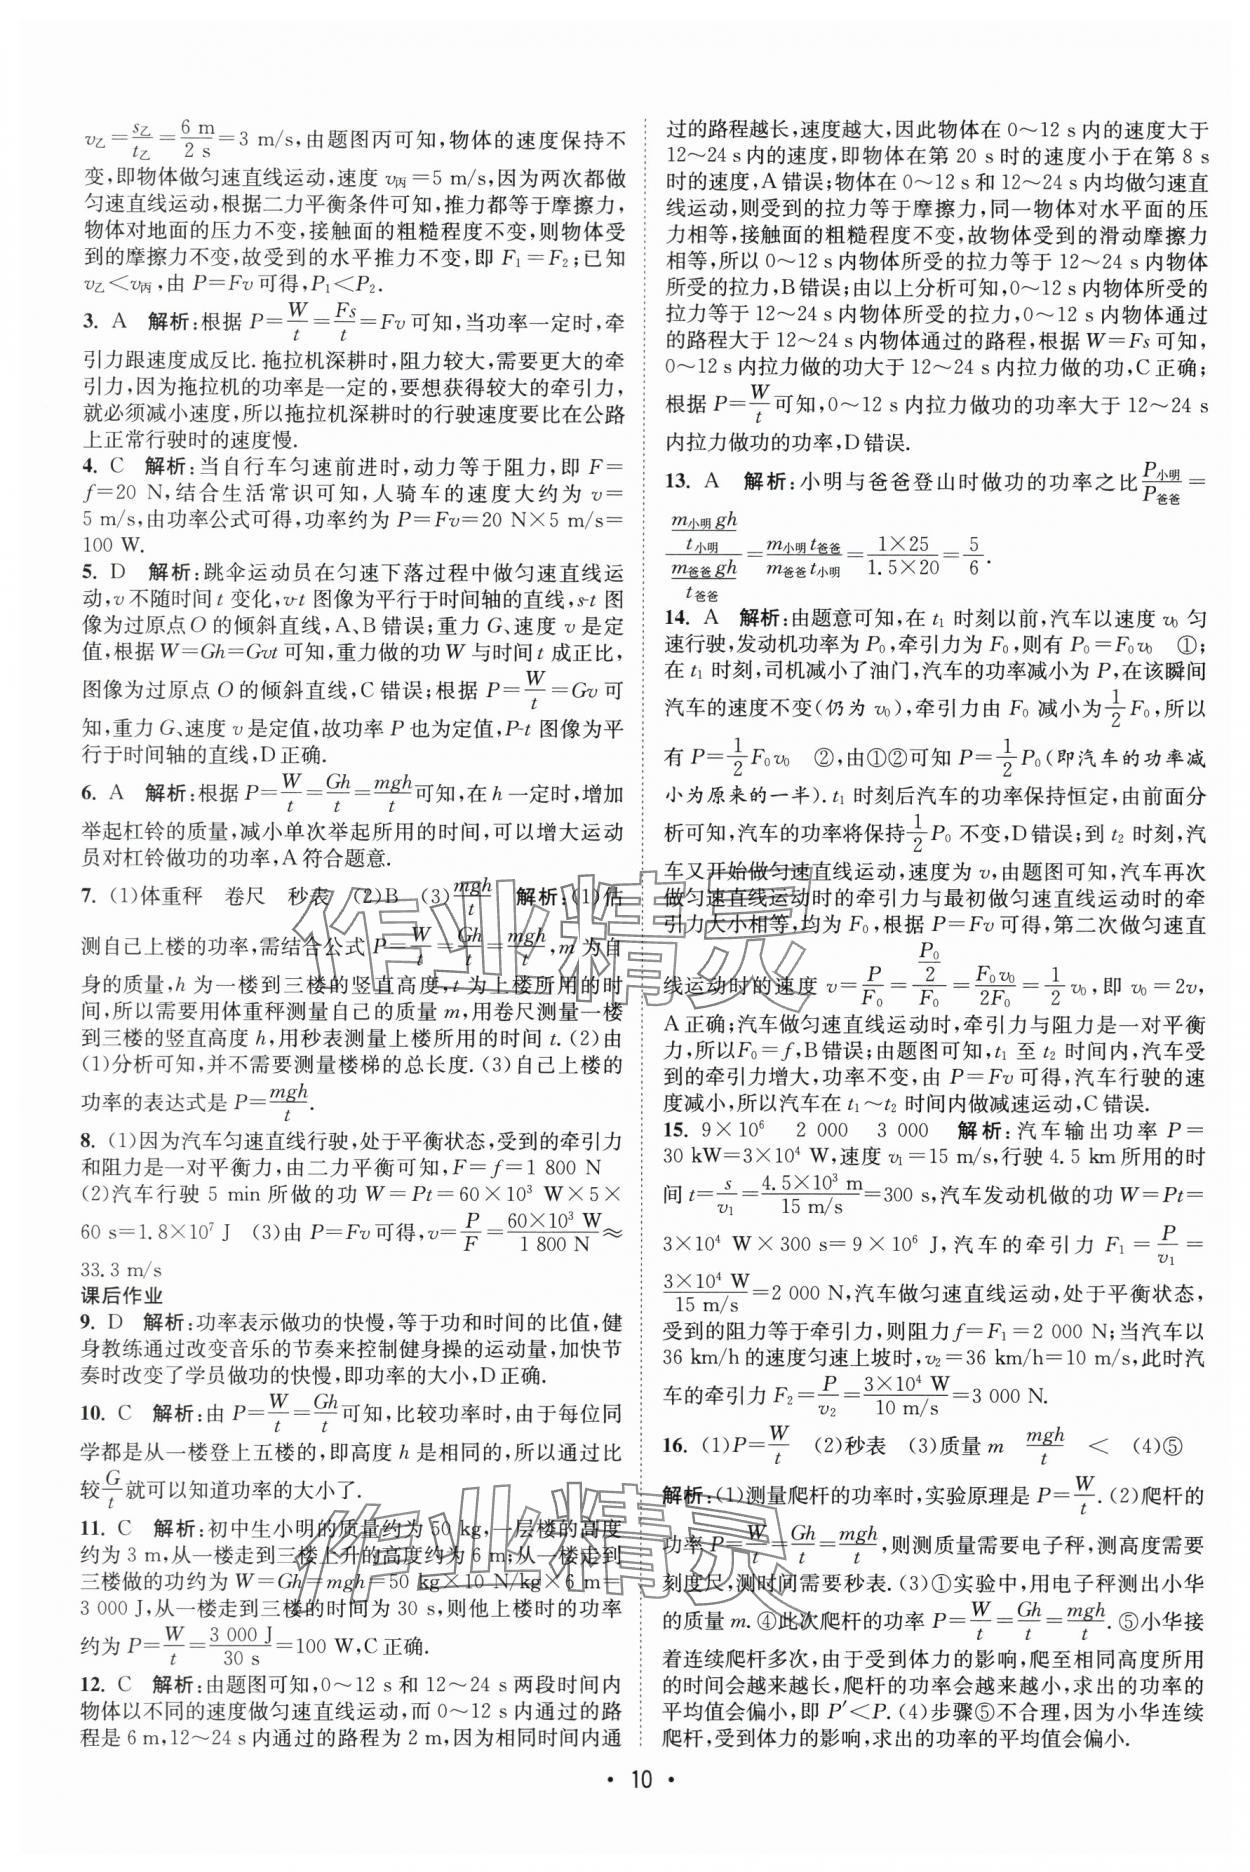 v乙=s乙/t乙=6 m/2 s=3 m/s,由题图丙可知,物体的速度保持不
变,即物体做匀速直线运动,速度 v丙=5 m/s,因为两次都做
匀速直线运动,根据二力平衡条件可知,推力都等于摩擦力,
物体对地面的压力不变,接触面的粗糙程度不变,则物体受
到的摩擦力不变,故受到的水平推力不变,即 F₁=F₂;已知
v乙<v丙,由 P=Fv 可得,P₁<P₂.
3. A 解析:根据 P=W/t=Fs/t=Fv 可知,当功率一定时,牵
引力跟速度成反比. 拖拉机深耕时,阻力较大,需要更大的牵
引力,因为拖拉机的功率是一定的,要想获得较大的牵引力,
就必须减小速度,所以拖拉机深耕时的行驶速度要比在公路
上正常行驶时的速度慢.
4. C 解析:当自行车匀速前进时,动力等于阻力,即 F=
f=20 N,结合生活常识可知,人骑车的速度大约为 v=
5 m/s,由功率公式可得,功率约为 P=Fv=20 N×5 m/s=
100 W.
5. D 解析:跳伞运动员在匀速下落过程中做匀速直线运
动,v 不随时间 t 变化,v-t 图像为平行于时间轴的直线,s-t 图
像为过原点 O 的倾斜直线,A、B 错误;重力 G、速度 v 是定
值,根据 W=Gh=Gvt 可知,重力做的功 W 与时间 t 成正比,
图像为过原点 O 的倾斜直线,C 错误;根据 P=W/t=Gv 可
知,重力 G、速度 v 是定值,故功率 P 也为定值,P-t 图像为平
行于时间轴的直线,D 正确.
6. A 解析:根据 P=W/t=Gh/t=mgh/t可知,在 h 一定时,增加
举起杠铃的质量,减小单次举起所用的时间,可以增大运动
员对杠铃做功的功率,A 符合题意.
7. (1)体重秤 卷尺 秒表 (2)B (3)mgh/t 解析:(1)估
测自己上楼的功率,需结合公式 P=W/t=Gh/t=mgh/t,m 为自
身的质量,h 为一楼到三楼的竖直高度,t 为上楼所用的时
间,所以需要用体重秤测量自己的质量 m,用卷尺测量一楼
到三楼的竖直高度 h,用秒表测量上楼所用的时间 t. (2)由
(1)分析可知,并不需要测量楼梯的总长度. (3)自己上楼的
功率的表达式是 P=mgh/t.
8. (1)因为汽车匀速直线行驶,处于平衡状态,受到的牵引力
和阻力是一对平衡力,由二力平衡可知,F=f=1 800 N
(2)汽车行驶 5 min 所做的功 W=Pt=60×10³ W×5×
60 s=1.8×10⁷ J (3)由 P=Fv 可得,v=P/F=60×10³ W/1 800 N≈
33.3 m/s
课后作业
9. D 解析:功率表示做功的快慢,等于功和时间的比值,健
身教练通过改变音乐的节奏来控制健身操的运动量,加快节
奏时改变了学员做功的快慢,即功率的大小,D 正确.
10. C 解析:由 P=W/t=Gh/t可知,比较功率时,由于每位同
学都是从一楼登上五楼的,即高度 h 是相同的,所以通过比
较G/t就可以知道功率的大小了.
11. C 解析:初中生小明的质量约为 50 kg,一层楼的高度
约为 3 m,从一楼走到三楼上升的高度约为 6 m;从一楼走到
三楼做的功约为 W=Gh=mgh=50 kg×10 N/kg×6 m=
3 000 J,从一楼走到三楼的时间为 30 s,则他上楼时的功率
约为 P=W/t=3 000 J/30 s=100 W,C 正确.
12. C 解析:由题图可知,0~12 s 和 12~24 s 两段时间内
物体以不同的速度做匀速直线运动,而 0~12 s 内通过的路
程是 6 m,12~24 s 内通过的路程为 2 m,因为相同时间内通
过的路程越长,速度越大,因此物体在 0~12 s 内的速度大于
12~24 s 内的速度,即物体在第 20 s 时的速度小于在第 8 s
时的速度,A 错误;物体在 0~12 s 和 12~24 s 内均做匀速直
线运动,则受到的拉力等于摩擦力,同一物体对水平面的压
力相等,接触面的粗糙程度不变,故物体受到的滑动摩擦力
相等,所以 0~12 s 内物体所受的拉力等于 12~24 s 内物体
所受的拉力,B 错误;由以上分析可知,0~12 s 内物体所受的
拉力等于 12~24 s 内物体所受的拉力,0~12 s 内物体通过
的路程大于 12~24 s 内物体通过的路程,根据 W=Fs 可知,
0~12 s 内拉力做的功大于 12~24 s 内拉力做的功,C 正确;
根据 P=W/t可知,0~12 s 内拉力做功的功率大于 12~24 s
内拉力做功的功率,D 错误.
13. A 解析:小明与爸爸登山时做功的功率之比P小明/P爸爸=
(m小明gh/t小明)/(m爸爸gh/t爸爸)=m小明t爸爸/m爸爸t小明=1×25/1.5×20=5/6.
14. A 解析:由题意可知,在 t₁ 时刻以前,汽车以速度 v₀ 匀
速行驶,发动机功率为 P₀,牵引力为 F₀,则有 P₀=F₀v₀ ①;
在 t₁ 时刻,司机减小了油门,汽车的功率减小为 P,在该瞬间
汽车的速度不变(仍为 v₀),牵引力由 F₀ 减小为1/2F₀,所以
有 P=1/2F₀v₀ ②,由①②可知 P=1/2P₀(即汽车的功率减
小为原来的一半). t₁ 时刻后汽车的功率保持恒定,由前面分
析可知,汽车的功率将保持1/2P₀ 不变,D 错误;到 t₂ 时刻,汽
车又开始做匀速直线运动,速度为 v,由题意可知,汽车再次
做匀速直线运动时的牵引力与最初做匀速直线运动时的牵
引力大小相等,均为 F₀,根据 P=Fv 可得,第二次做匀速直
线运动时的速度 v=P/F₀=(P₀/2)/F₀=F₀v₀/2F₀=1/2v₀,即 v₀=2v,
A 正确;汽车做匀速直线运动时,牵引力与阻力是一对平衡
力,所以F₀=f,B 错误;由题图可知,t₁ 至 t₂ 时间内,汽车受
到的牵引力增大,功率不变,由 P=Fv 可得,汽车行驶的速
度减小,所以汽车在 t₁~t₂ 时间内做减速运动,C 错误.
15. 9×10⁶ 2 000 3 000 解析:汽车输出功率 P=
30 kW=3×10⁴ W,速度 v₁=15 m/s,行驶 4.5 km 所用的时
间 t=s/v₁=4.5×10³ m/15 m/s=300 s,汽车发动机做的功 W=Pt=
3×10⁴ W×300 s=9×10⁶ J,汽车的牵引力 F₁=P/v₁=
3×10⁴ W/15 m/s=2 000 N,汽车做匀速直线运动,处于平衡状态,
受到的阻力等于牵引力,则阻力 f=F₁=2 000 N;当汽车以
36 km/h 的速度匀速上坡时,v₂=36 km/h=10 m/s,此时汽
车的牵引力 F₂=P/v₂=3×10⁴ W/10 m/s=3 000 N.
16. (1)P=W/t (2)秒表 (3)质量 m mgh/t < (4)⑤
解析:(1)测量爬杆的功率时,实验原理是 P=W/t. (2)爬杆的
功率 P=W/t=Gh/t=mgh/t,则测质量需要电子秤,测高度需要
刻度尺,测时间需要秒表. (3)①实验中,用电子秤测出小华
的质量 m. ④此次爬杆的功率 P=W/t=Gh/t=mgh/t. ⑤小华接
着连续爬杆多次,由于受到体力的影响,爬至相同高度所用
的时间会越来越长,爬杆的功率会越来越小,求出的功率的
平均值会偏小,即 P′<P. (4)步骤⑤不合理,因为小华连续
爬杆,受到体力的影响,求出的功率的平均值会偏小.
· 10 ·
作业精灵
作业精灵